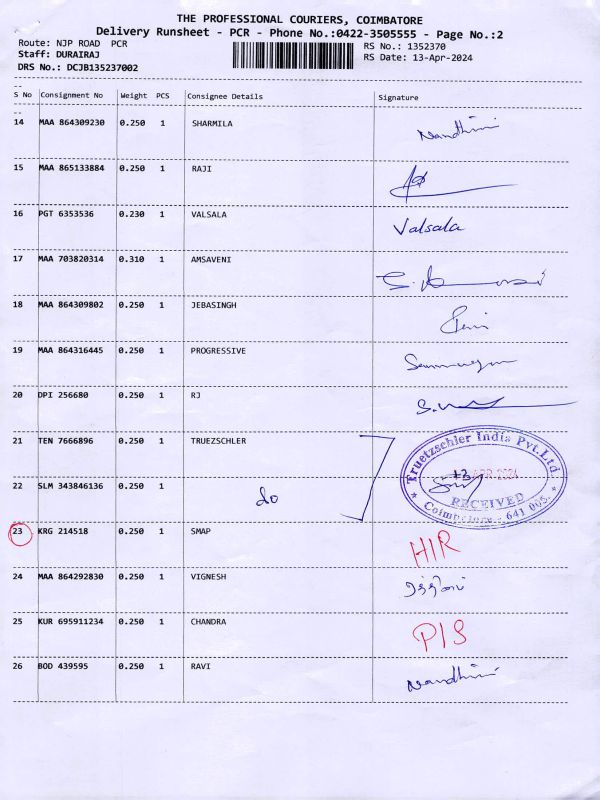 THE PROFESSIONAL COURIERS, COIMBATORE
Delivery Runsheet - PCR - Phone No.:0422-3505555 - Page No.:2
Route: NJP ROAD PCR
RS No.: 1352370
Staff: DURAIRAJ
RS Date: 13-Apr-2024
DRS No.: DCJB135237002
S No Consignment No Weight PCS Consignee Details Signature
14 MAA 864309230 0.250 1 SHARMILA Nandhini
15 MAA 865133884 0.250 1 RAJI
16 PGT 6353536 0.230 1 VALSALA Valsala
17 MAA 703820314 0.310 1 AMSAVENI
18 MAA 864309802 0.250 1 JEBASINGH
19 MAA 864316445 0.250 1 PROGRESSIVE
20 DPI 256680 0.250 1 RJ
21 TEN 7666896 0.250 1 TRUEZSCHLER
Truetzschler India Pvt.Ltd.
13 APR 2024
RECEIVED
Coimbatore - 641 005.
22 SLM 343846136 0.250 1 do
23 KRG 214518 0.250 1 SMAP HIR
24 MAA 864292830 0.250 1 VIGNESH
25 KUR 695911234 0.250 1 CHANDRA P/S
26 BOD 439595 0.250 1 RAVI Nandhini